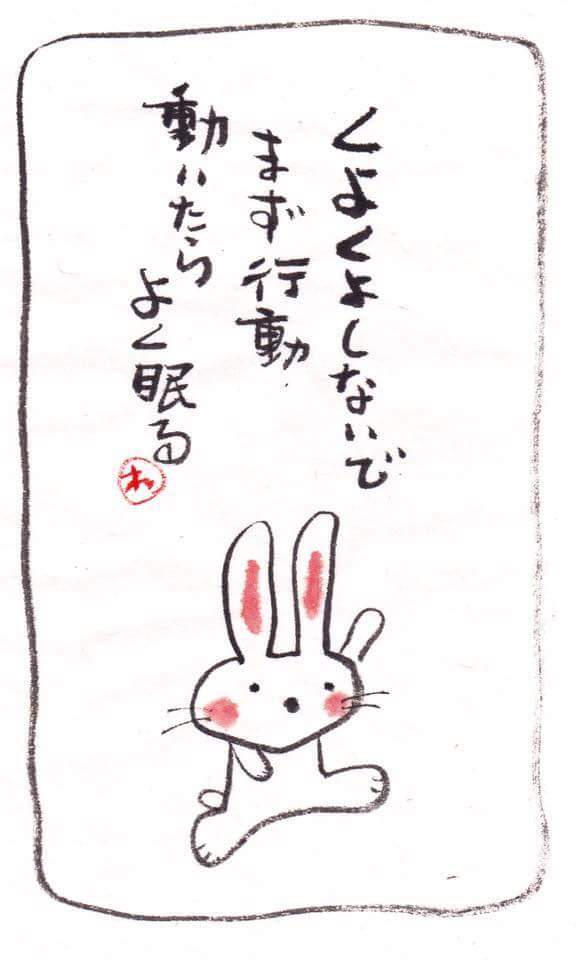 くよくよしないで
まず行動
動いたら
よく眠る